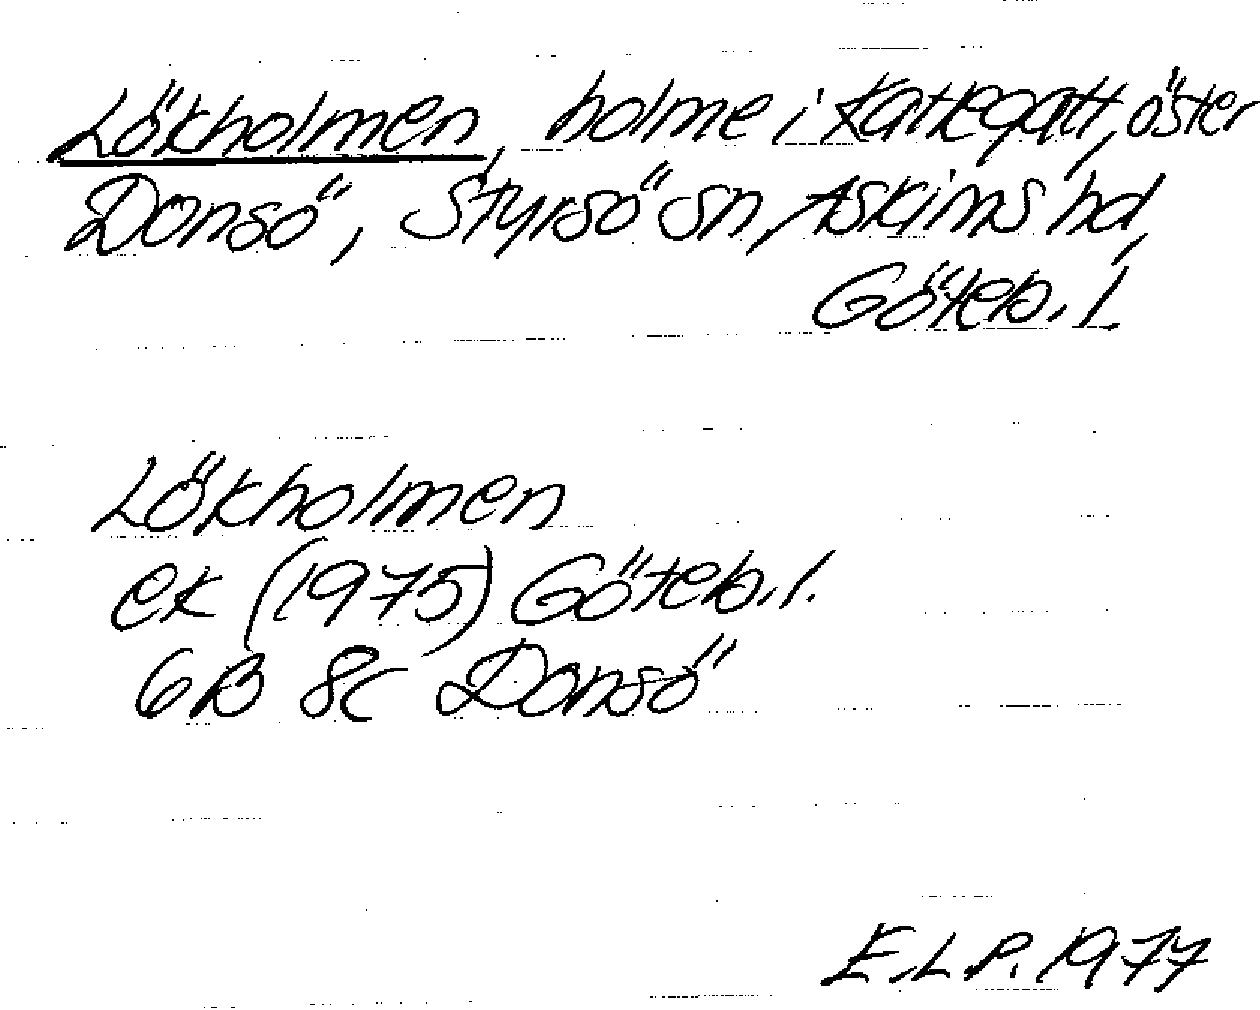 Lökholmen, holme i Kattegatt, öster
Donsö, Styrsö sn, Askims hd,
Göteb. l.
Lökholmen
ek (1975) Göteb. l.
6B 8c Donsö
E.L.P. 1977